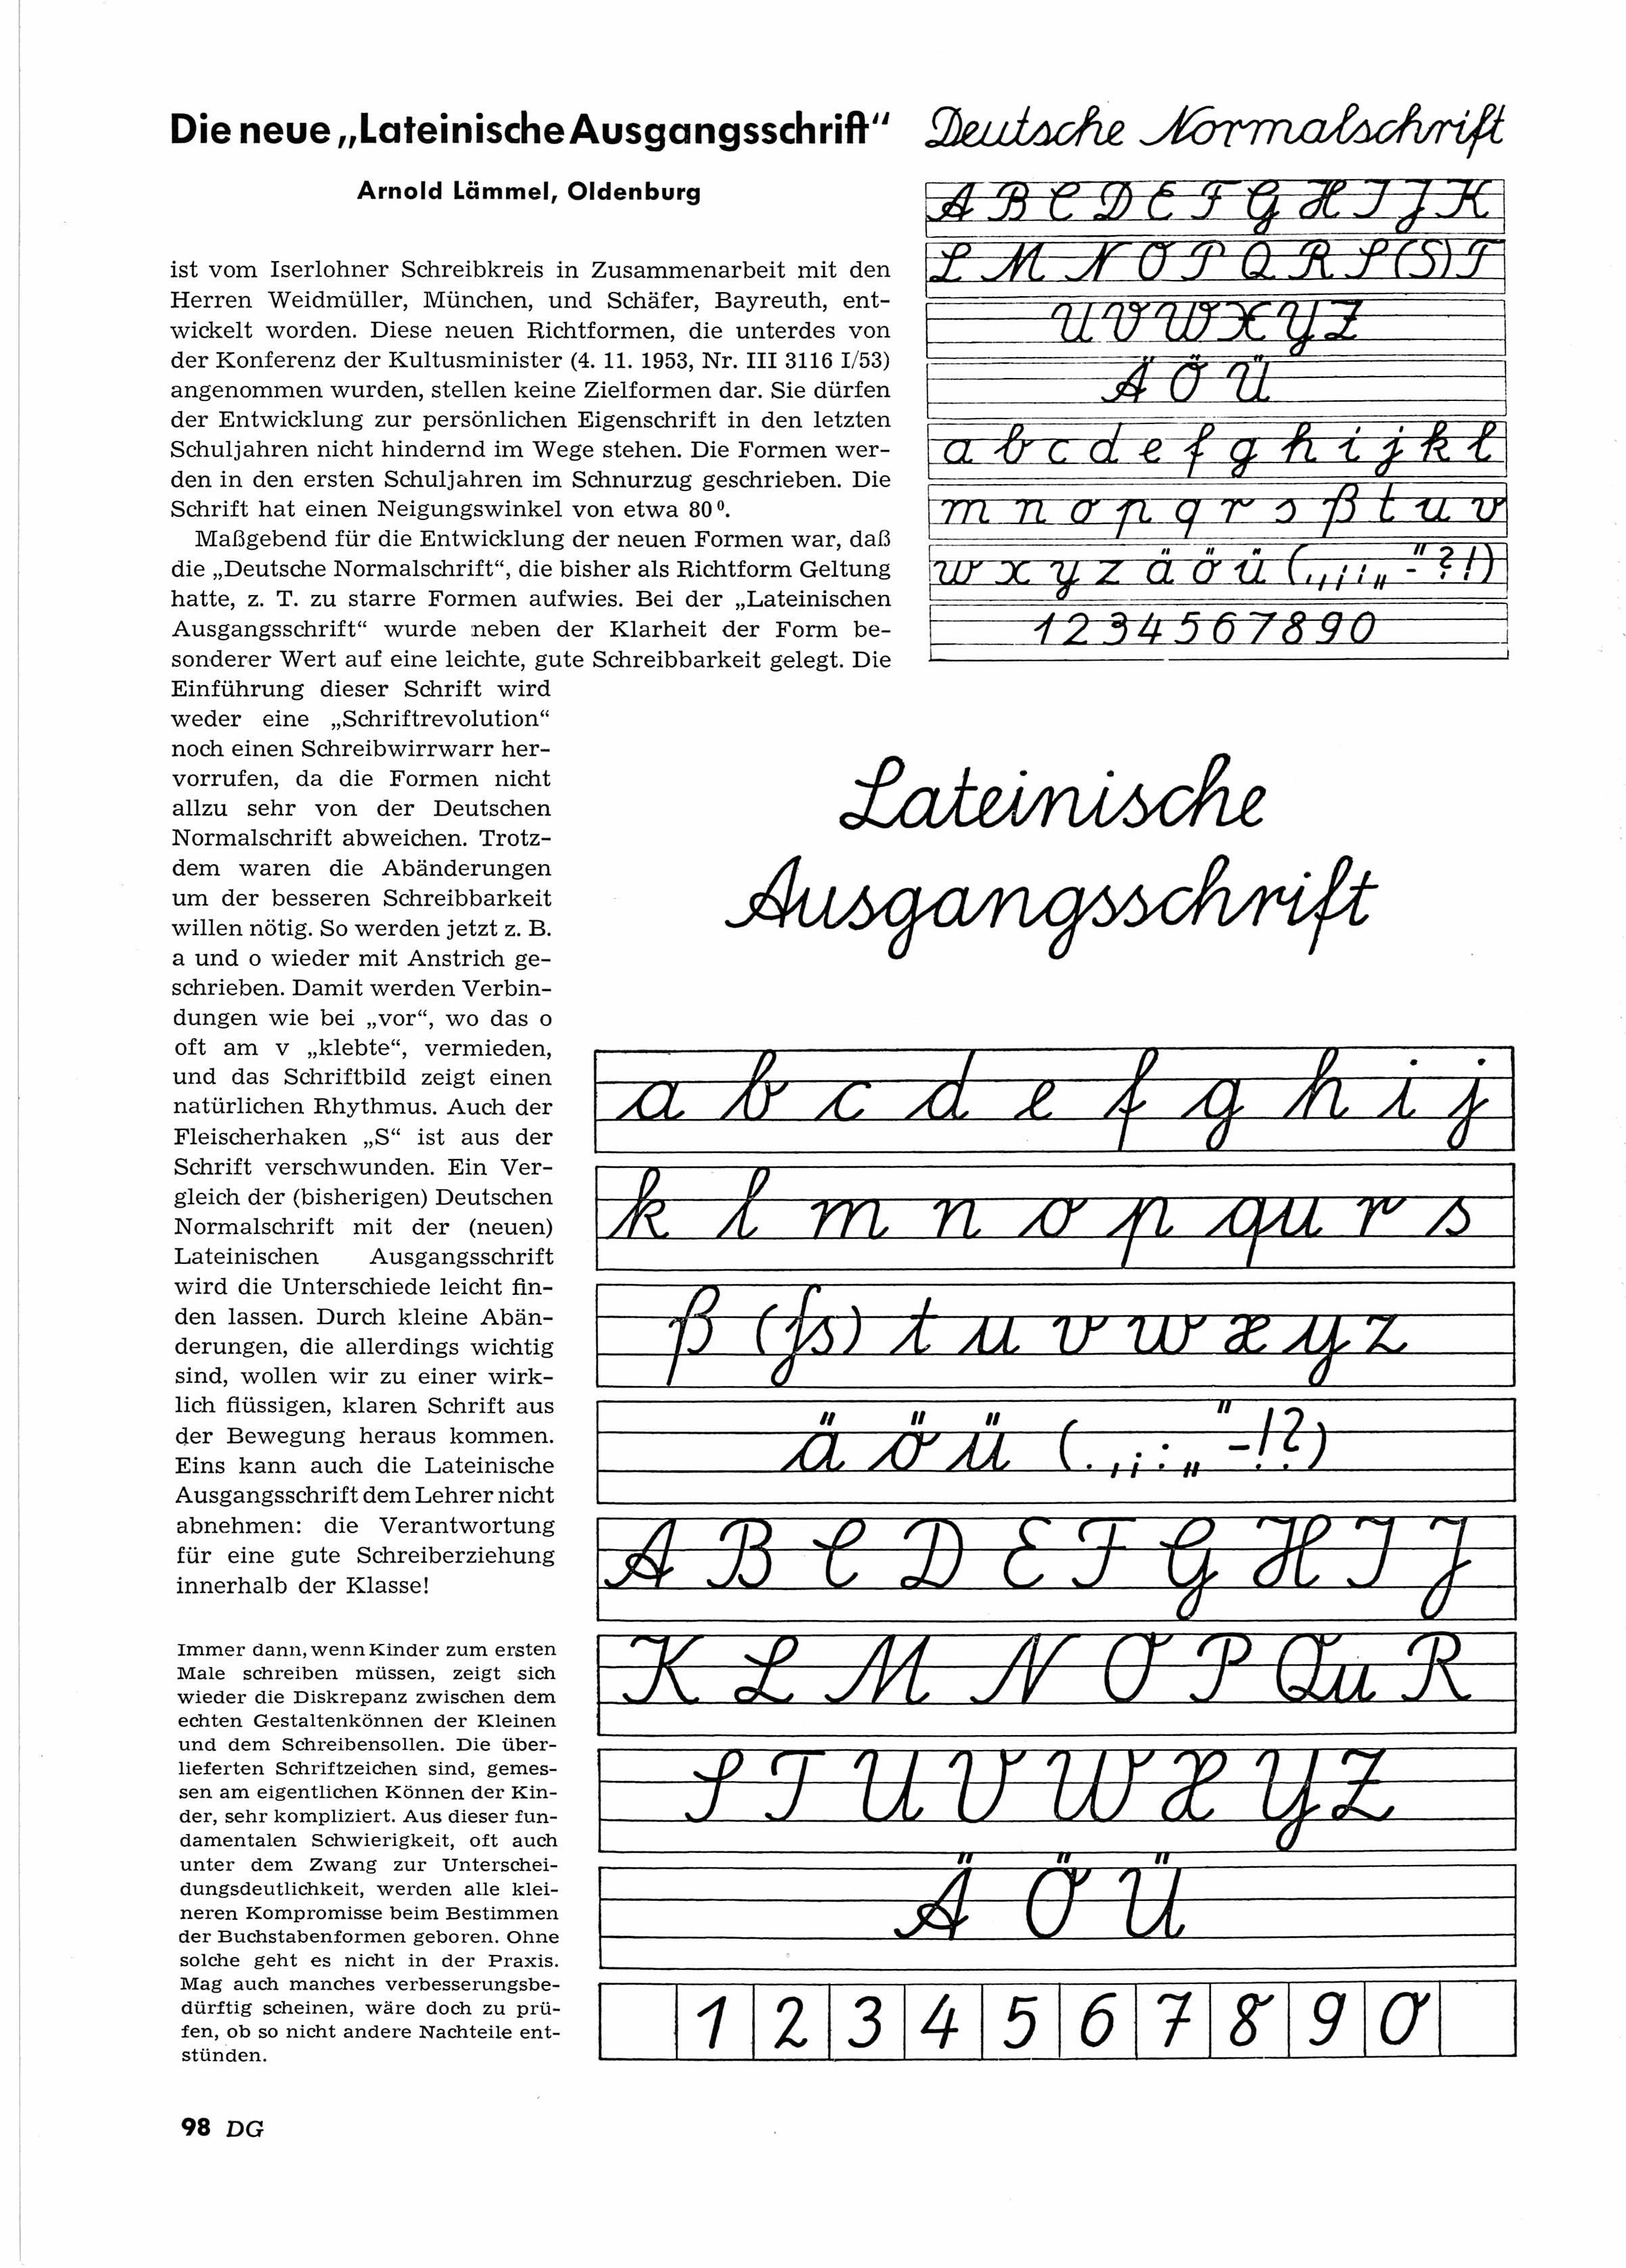 Die neue „Lateinische Ausgangsschrift“
Arnold Lämmel, Oldenburg
ist vom Iserlohner Schreibkreis in Zusammenarbeit mit den
Herren Weidmüller, München, und Schäfer, Bayreuth, ent-
wickelt worden. Diese neuen Richtformen, die unterdes von
der Konferenz der Kultusminister (4. 11. 1953, Nr. III 3116 I/53)
angenommen wurden, stellen keine Zielformen dar. Sie dürfen
der Entwicklung zur persönlichen Eigenschrift in den letzten
Schuljahren nicht hindernd im Wege stehen. Die Formen wer-
den in den ersten Schuljahren im Schnurzug geschrieben. Die
Schrift hat einen Neigungswinkel von etwa 80⁰.
Maßgebend für die Entwicklung der neuen Formen war, daß
die „Deutsche Normalschrift“, die bisher als Richtform Geltung
hatte, z. T. zu starre Formen aufwies. Bei der „Lateinischen
Ausgangsschrift“ wurde neben der Klarheit der Form be-
sonderer Wert auf eine leichte, gute Schreibbarkeit gelegt. Die
Einführung dieser Schrift wird
weder eine „Schriftrevolution“
noch einen Schreibwirrwarr her-
vorrufen, da die Formen nicht
allzu sehr von der Deutschen
Normalschrift abweichen. Trotz-
dem waren die Abänderungen
um der besseren Schreibbarkeit
willen nötig. So werden jetzt z. B.
a und o wieder mit Anstrich ge-
schrieben. Damit werden Verbin-
dungen wie bei „vor“, wo das o
oft am v „klebte“, vermieden,
und das Schriftbild zeigt einen
natürlichen Rhythmus. Auch der
Fleischerhaken „S“ ist aus der
Schrift verschwunden. Ein Ver-
gleich der (bisherigen) Deutschen
Normalschrift mit der (neuen)
Lateinischen Ausgangsschrift
wird die Unterschiede leicht fin-
den lassen. Durch kleine Abän-
derungen, die allerdings wichtig
sind, wollen wir zu einer wirk-
lich flüssigen, klaren Schrift aus
der Bewegung heraus kommen.
Eins kann auch die Lateinische
Ausgangsschrift dem Lehrer nicht
abnehmen: die Verantwortung
für eine gute Schreiberziehung
innerhalb der Klasse!
Immer dann, wenn Kinder zum ersten
Male schreiben müssen, zeigt sich
wieder die Diskrepanz zwischen dem
echten Gestaltenkönnen der Kleinen
und dem Schreibensollen. Die über-
lieferten Schriftzeichen sind, gemes-
sen am eigentlichen Können der Kin-
der, sehr kompliziert. Aus dieser fun-
damentalen Schwierigkeit, oft auch
unter dem Zwang zur Unterschei-
dungsdeutlichkeit, werden alle klei-
neren Kompromisse beim Bestimmen
der Buchstabenformen geboren. Ohne
solche geht es nicht in der Praxis.
Mag auch manches verbesserungsbe-
dürftig scheinen, wäre doch zu prü-
fen, ob so nicht andere Nachteile ent-
stünden.
98 DG
Deutsche Normalschrift
A B C D E F G H I J K
L M N O P Q R S (S) T
U V W X Y Z
Ä Ö Ü
a b c d e f g h i j k l
m n o p q r s ß t u v
w x y z ä ö ü (., ; : „ - “ ? !)
1 2 3 4 5 6 7 8 9 0
Lateinische
Ausgangsschrift
a b c d e f g h i j
k l m n o p qu r s
ß (ſs) t u v w x y z
ä ö ü (. , ; : „ “ - ! ?)
A B C D E F G H I J
K L M N O P Qu R
S T U V W X Y Z
Ä Ö Ü
1 2 3 4 5 6 7 8 9 0